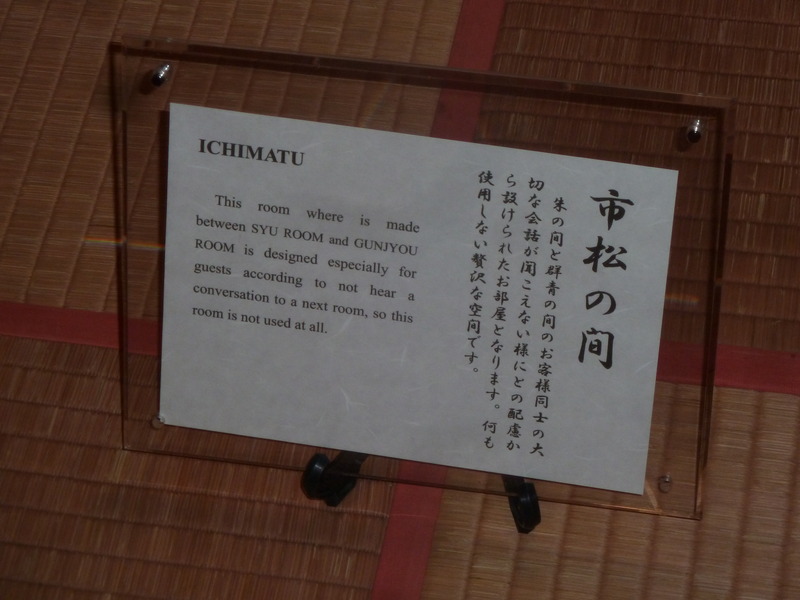 ICHIMATU
This room where is made
between SYU ROOM and GUNJYOU
ROOM is designed especially for
guests according to not hear a
conversation to a next room, so this
room is not used at all.
市松の間
朱の間と群青の間のお客様同士の大
切な会話が聞こえない様にとの配慮か
ら設けられたお部屋となります。何も
使用しない贅沢な空間です。